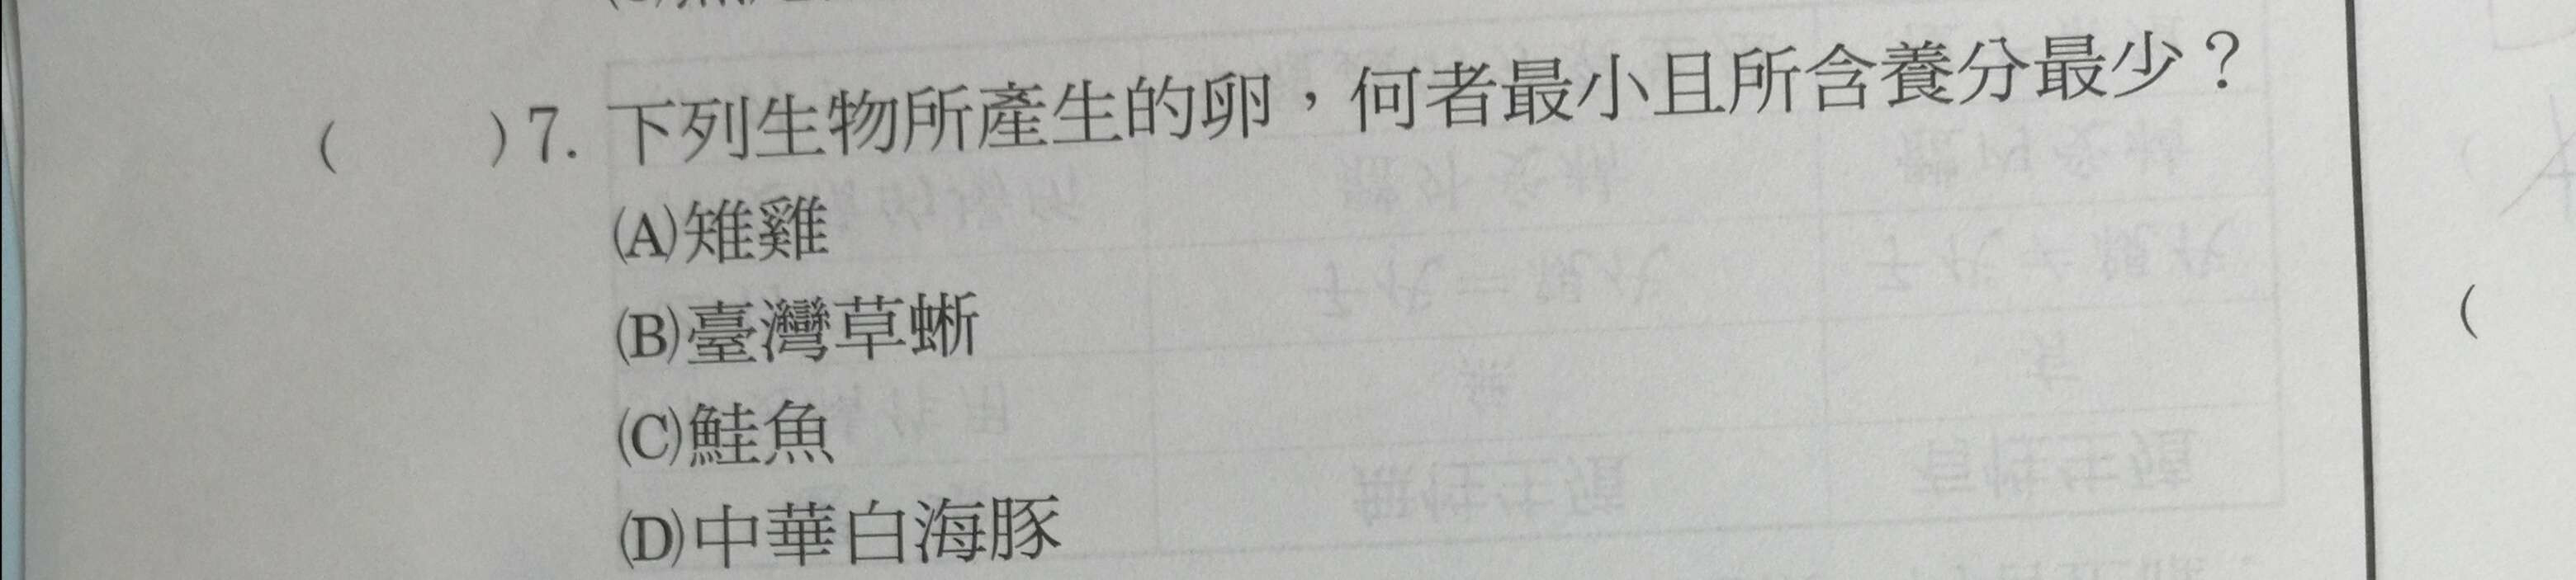 ( )7. 下列生物所產生的卵，何者最小且所含養分最少？
(A)雉雞
(B)臺灣草蜥
(C)鮭魚
(D)中華白海豚
(